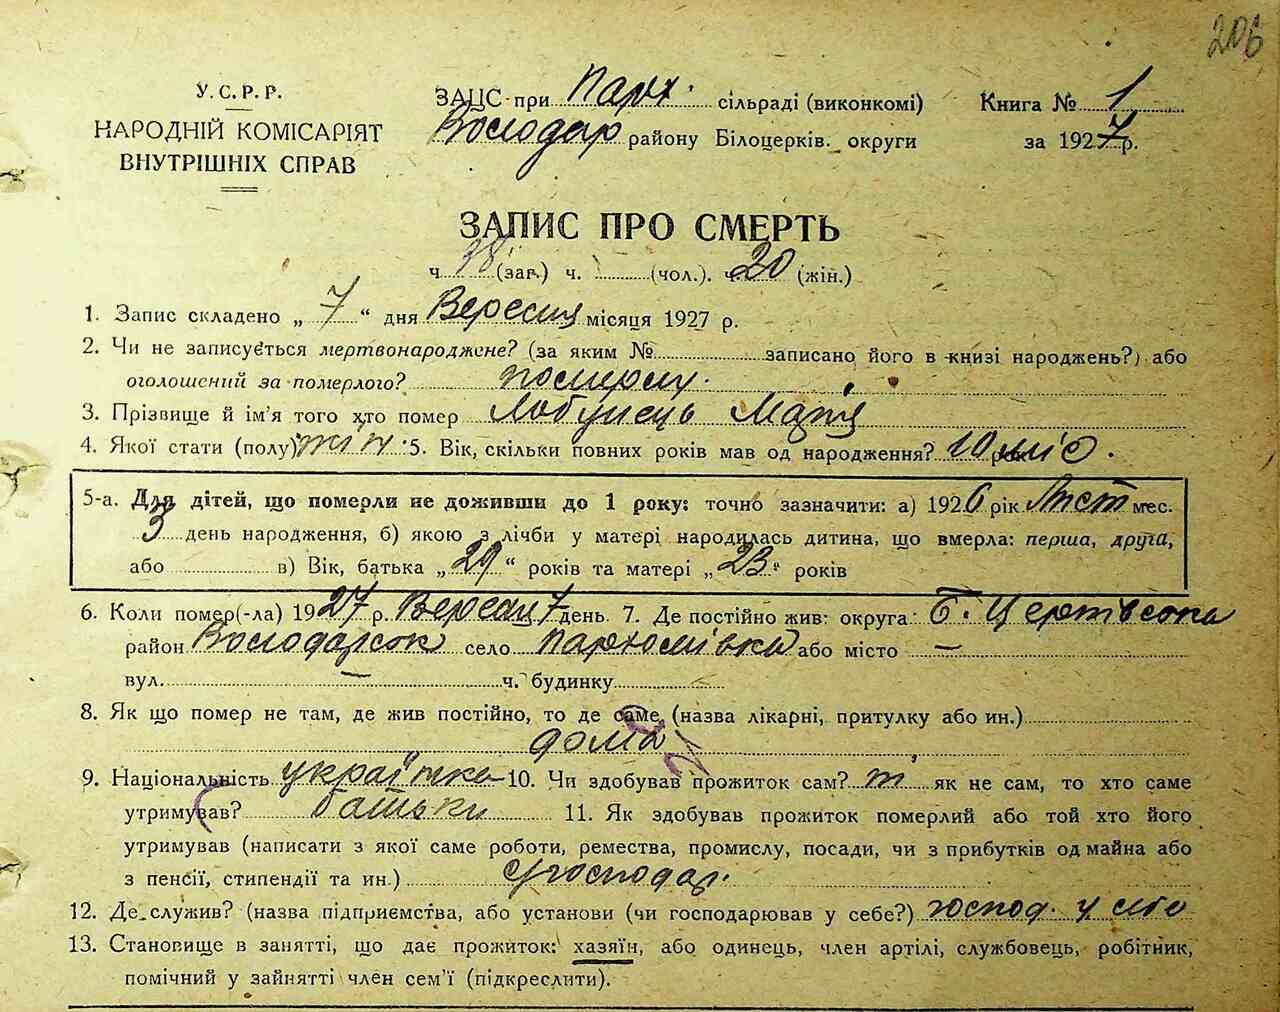 206
У.С.Р.Р.
НАРОДНІЙ КОМІСАРІЯТ
ВНУТРІШНІХ СПРАВ
ЗАЦС при Парх. сільраді (виконкомі) Книга № 1
Володар району Білоцерків. округи за 1927 р.
ЗАПИС ПРО СМЕРТЬ
ч. 38 (заг.) ч. (чол.). ч. 20 (жін.)
1. Запис складено „ 7 “ дня Вересня місяця 1927 р.
2. Чи не записується мертвонароджене? (за яким № записано його в книзі народжень?) або
оголошений за померлого? померлу.
3. Прізвище й ім'я того хто помер Лобунець Марія
4. Якої стати (полу) жін. 5. Вік, скільки повних років мав од народження? 10 міс.
5-а. Для дітей, що померли не доживши до 1 року: точно зазначити: а) 1926 рік Лист мес.
3 день народження, б) якою з лічби у матері народилась дитина, що вмерла: перша, друга,
або в) Вік, батька „29“ років та матері „23“ років
6. Коли помер(-ла) 1927 р. Вересня 7 день. 7. Де постійно жив: округа: Б. Церківська
район Володарськ село Пархомівка або місто –
вул. – ч. будинку
8. Як що помер не там, де жив постійно, то де саме (назва лікарні, притулку або ин.)
дома
9. Національність українка 10. Чи здобував прожиток сам? як не сам, то хто саме
утримував? батьки 11. Як здобував прожиток померлий або той хто його
утримував (написати з якої саме роботи, ремества, промислу, посади, чи з прибутків од майна або
з пенсії, стипендії та ин.) С/господар.
12. Де служив? (назва підприємства, або установи (чи господарював у себе?) господ. у себе
13. Становище в занятті, що дає прожиток: хазяїн, або одинець, член артілі, службовець, робітник,
помічний у зайнятті член сем'ї (підкреслити).